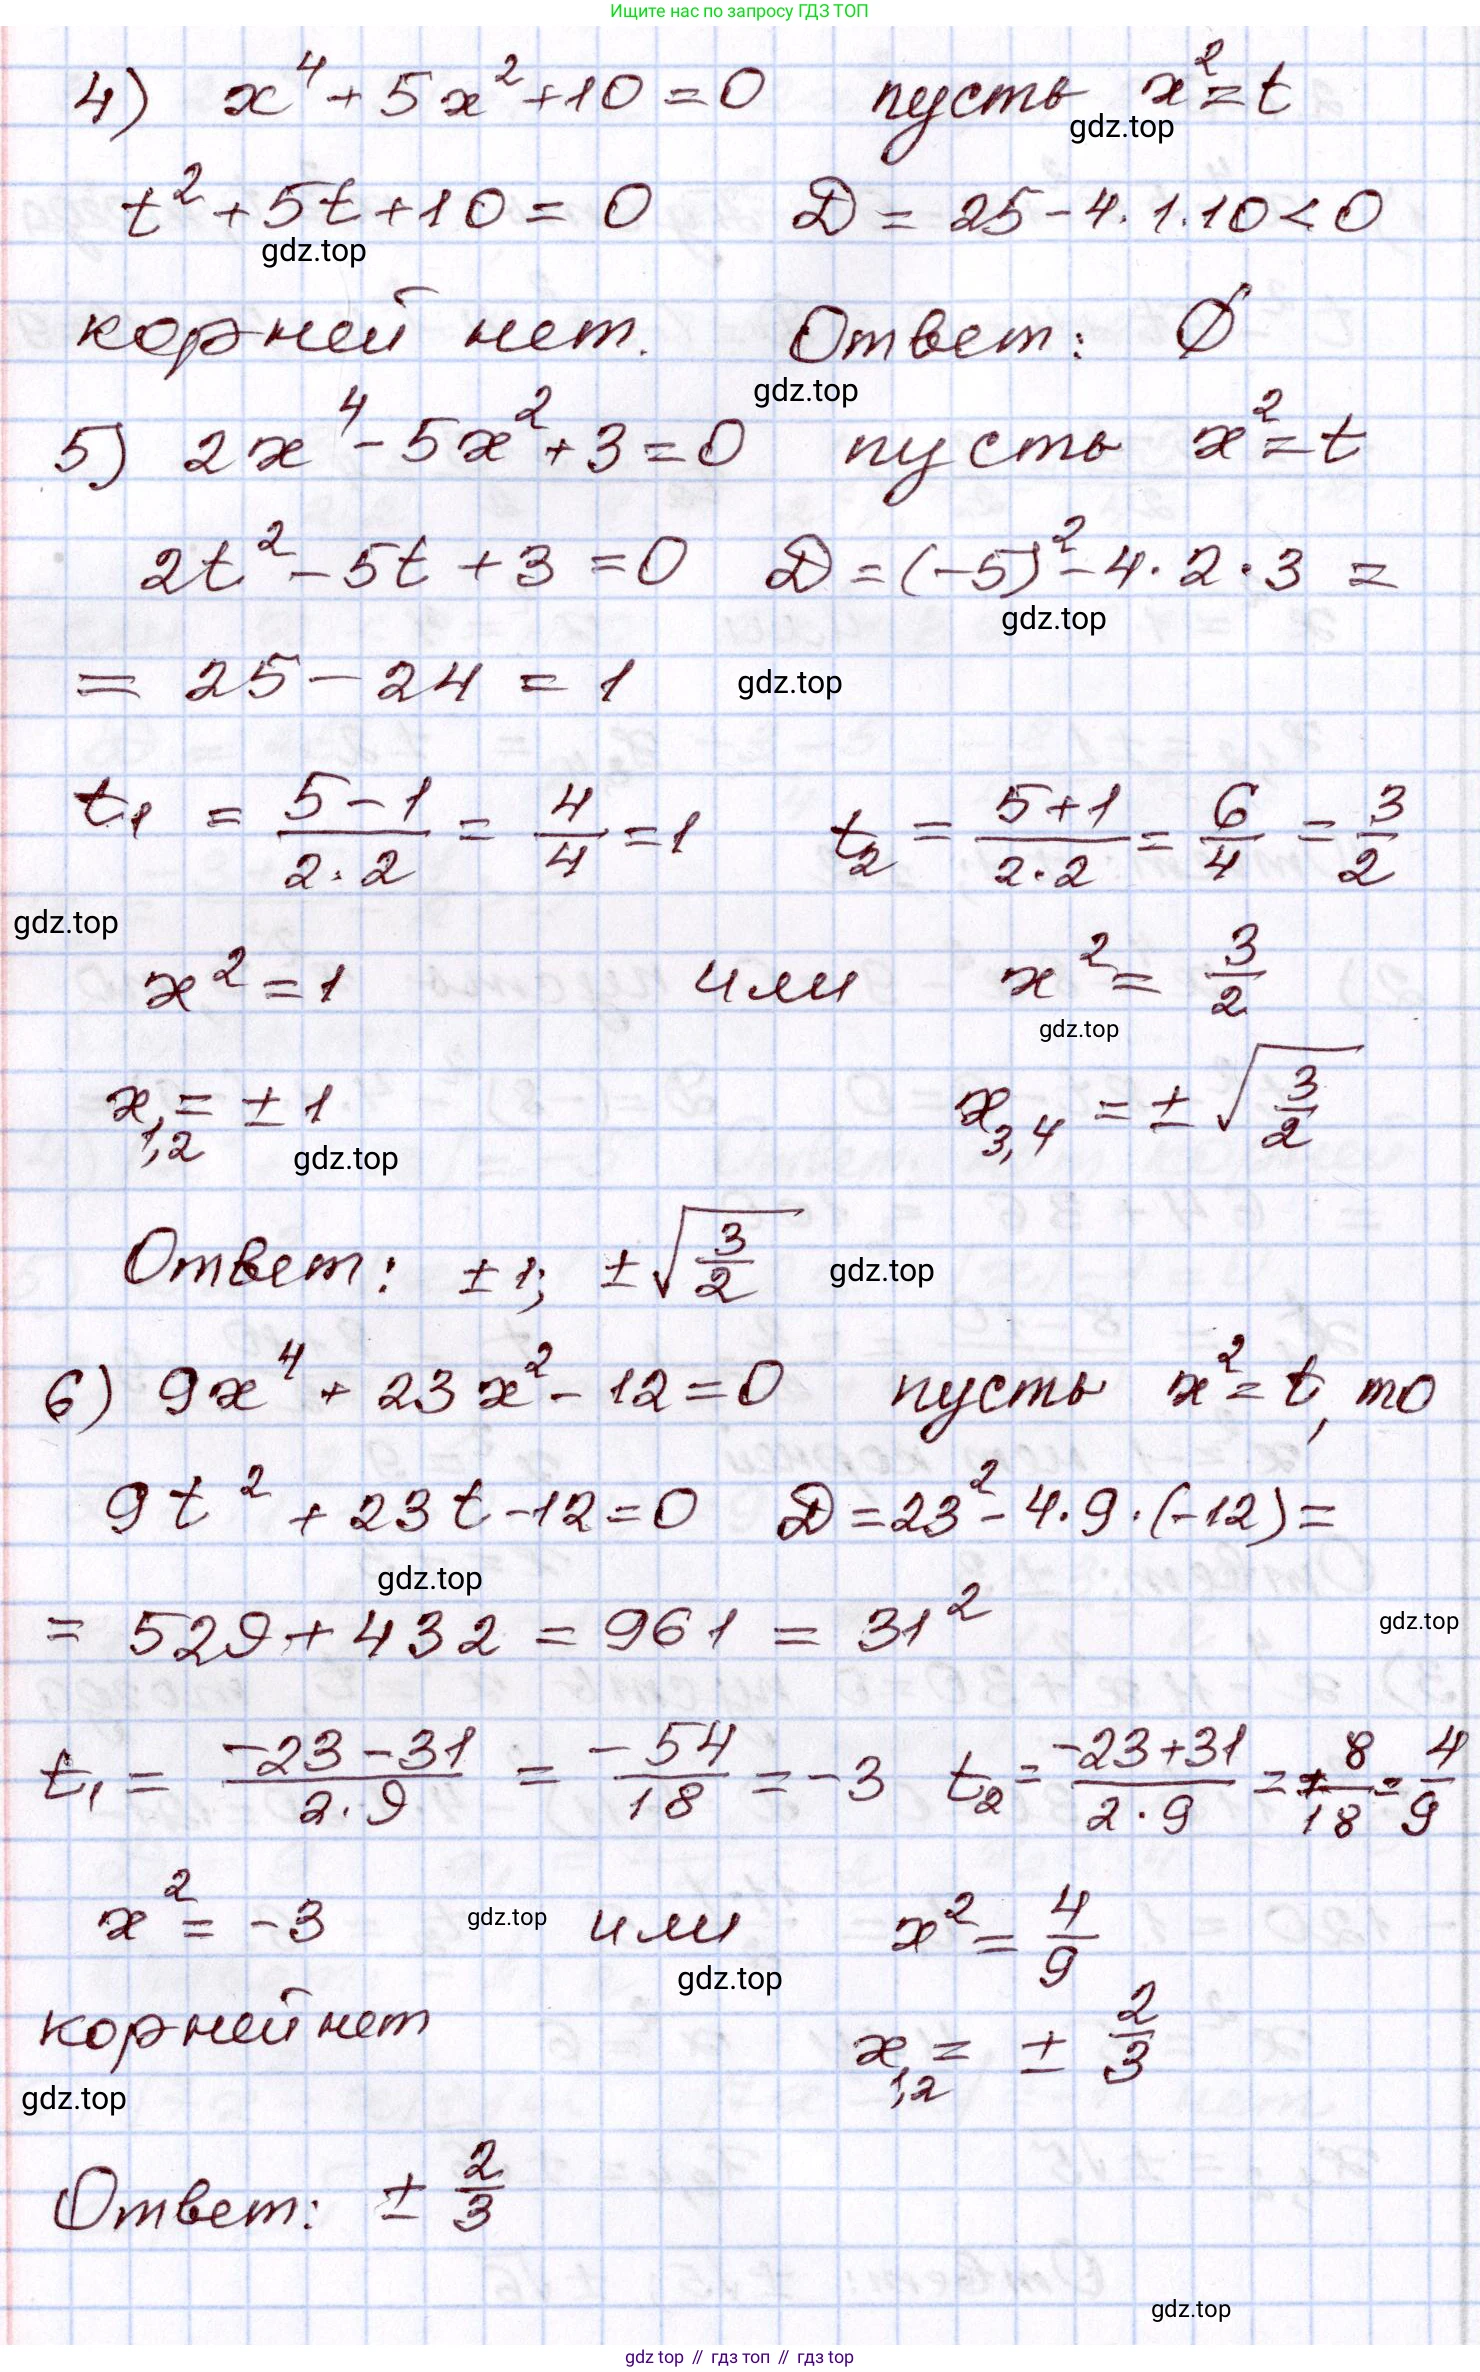 Ищите нас по запросу ГДЗ ТОП
4) x⁴ + 5x² + 10 = 0 пусть x² = t
gdz.top
t² + 5t + 10 = 0 D = 25 - 4·1·10 < 0
gdz.top
корней нет. Ответ: ∅
gdz.top
5) 2x⁴ - 5x² + 3 = 0 пусть x² = t
2t² - 5t + 3 = 0 D = (-5)² - 4·2·3 =
gdz.top
= 25 - 24 = 1 gdz.top
t₁ = (5-1)/(2·2) = 4/4 = 1 t₂ = (5+1)/(2·2) = 6/4 = 3/2
gdz.top
x² = 1 или x² = 3/2
gdz.top
x₁,₂ = ±1 x₃,₄ = ±√(3/2)
gdz.top
Ответ: ±1; ±√(3/2) gdz.top
6) 9x⁴ + 23x² - 12 = 0 пусть x² = t, то
9t² + 23t - 12 = 0 D = 23² - 4·9·(-12) =
gdz.top
= 529 + 432 = 961 = 31² gdz.top
t₁ = (-23-31)/(2·9) = -54/18 = -3 t₂ = (-23+31)/(2·9) = +8/18 = 4/9
x² = -3 gdz.top или x² = 4/9
gdz.top
корней нет x₁,₂ = ± 2/3
gdz.top
Ответ: ± 2/3
gdz.top
gdz top // гдз топ // гдз top